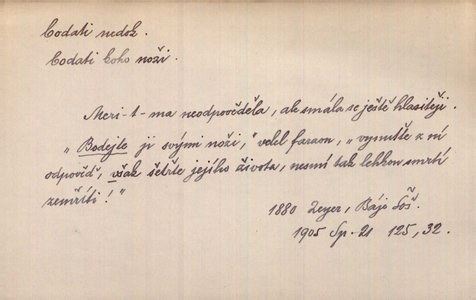 bodati nedok.
bodati koho noži.
Meri-t-ma neodpověděla, ale smála se ještě hlasitěji.
„Bodejte ji svými noži," velel faraon, „vynuťte z ní
odpověď, však šetřte jejího života, nesmí tak lehkou smrtí
zemříti!"
1880 Zeyer, Báje Šoš.
1905 Sp. 21 125, 32.